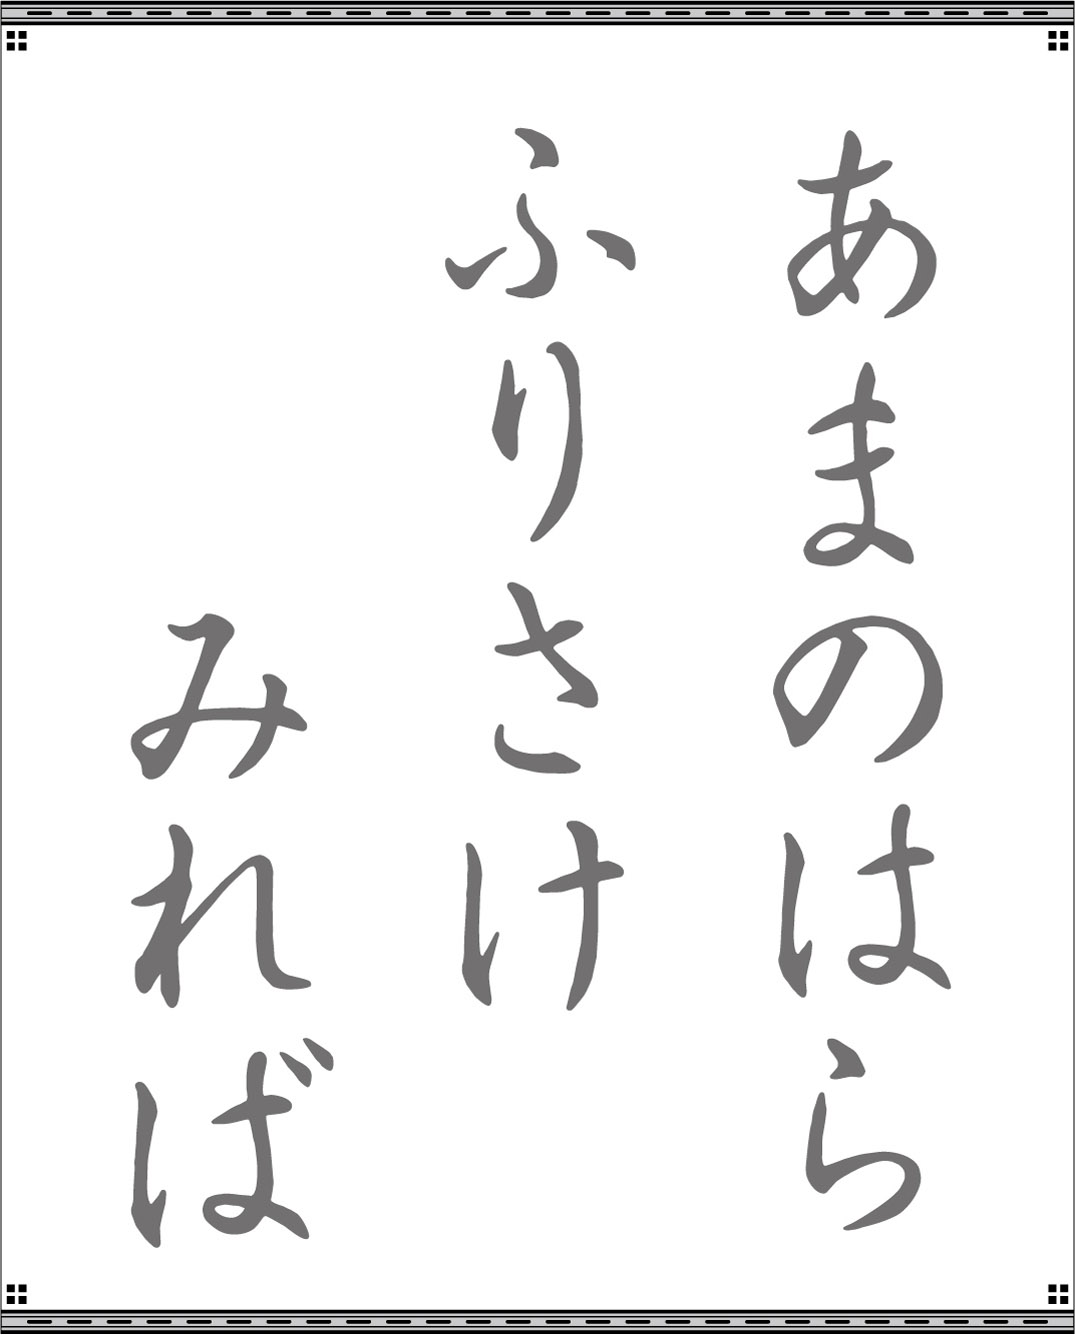 あまのはら
ふりさけ
みれば